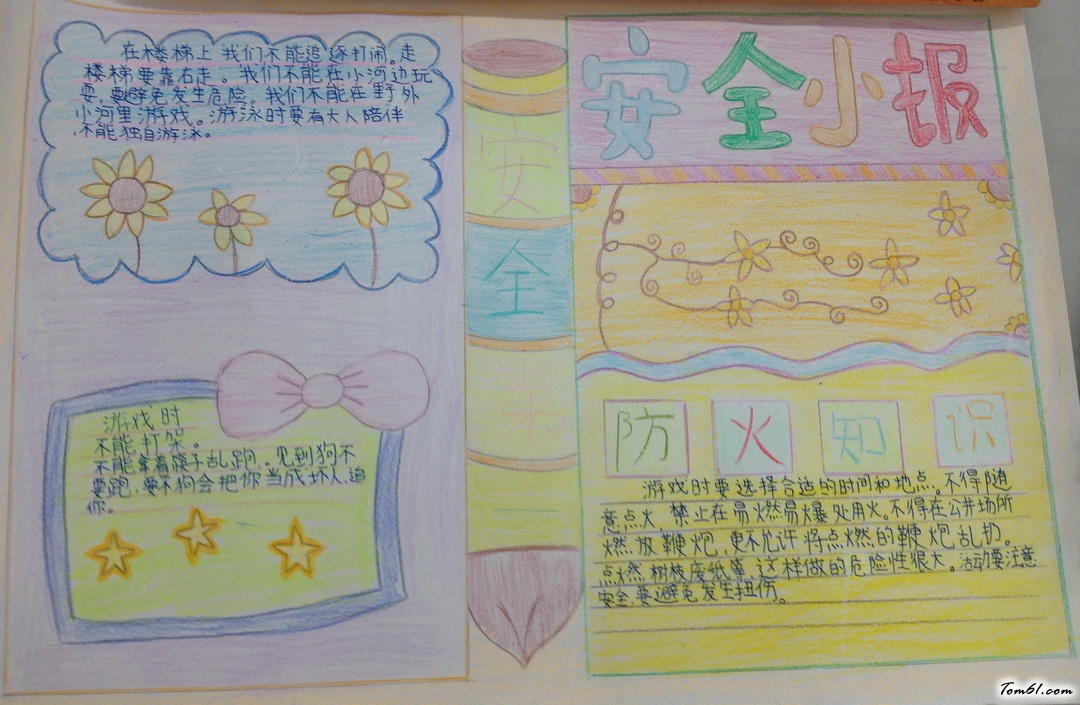 安全小报
在楼梯上我们不能追逐打闹。走
楼梯要靠右走。我们不能在小河边玩
耍,要避免发生危险。我们不能在野外
小河里游戏。游泳时要有大人陪伴
不能独自游泳。
游戏时
不能打架。
不能拿着筷子乱跑,见到狗不
要跑,要不狗会把你当成坏人追
你。
安
全
第
一
防火知识
游戏时要选择合适的时间和地点。不得随
意点火,禁止在易燃易爆处用火。不得在公共场所
燃放鞭炮,更不允许将点燃的鞭炮乱扔。
点燃树枝废纸等,这样做的危险性很大。活动要注意
安全,要避免发生扭伤。
Tom61.com